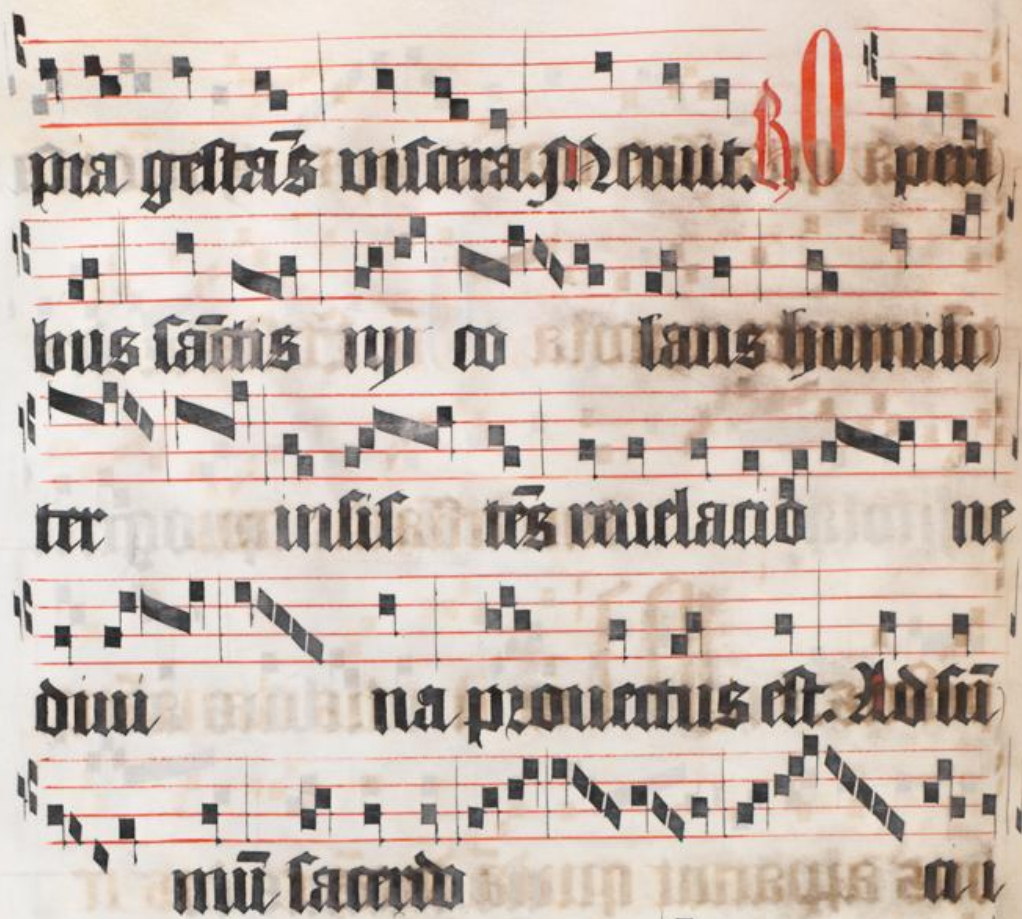 pia gestā̄s viscera. Meruit. R Operi
bus sāctis ny co lans humili
ter insis tēs reuelaciō ne
diui na prouectus est. Ad sū
mū sacerdo cii